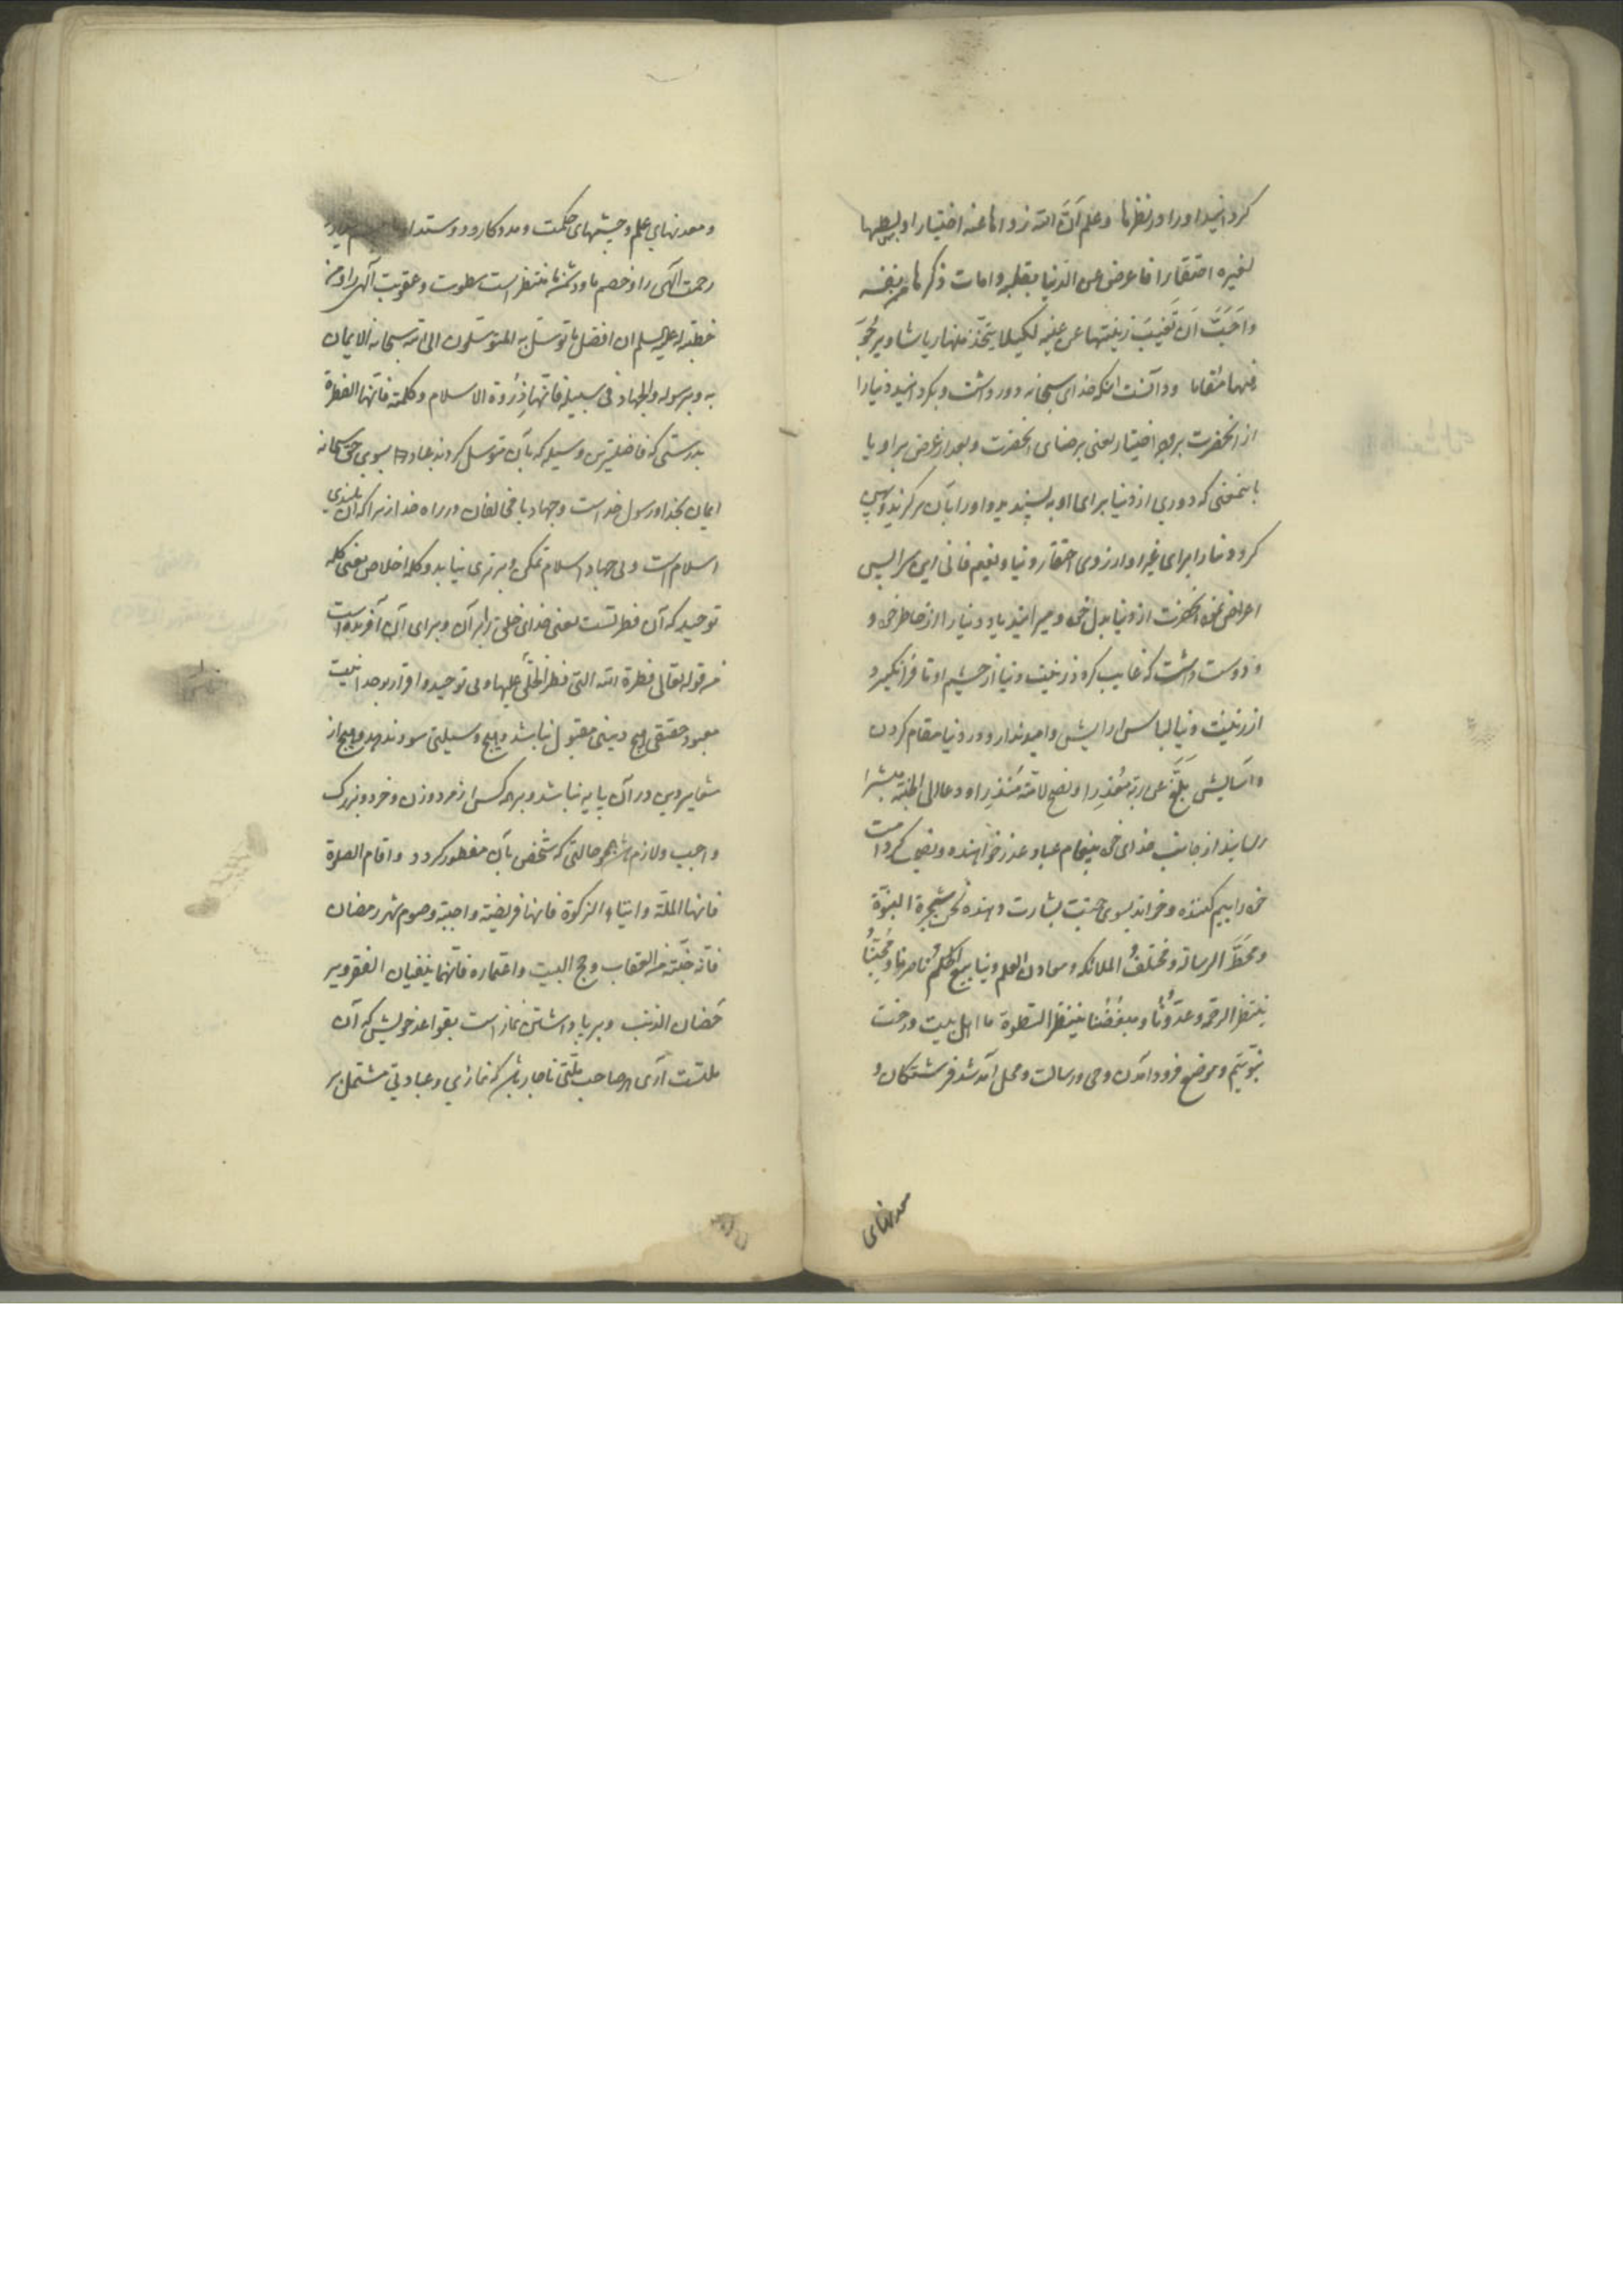 کردانید او را در نظرها وعلم أنّ الله زواها عنه اختیارا وبسطها
لغیره احتقارا فاعرض عن الدنیا بقلبه وامات ذکرها من نفسه
واَحَبَّ اَن تَغیبَ زینتها عن عینه لکیلا یتّخذ منها ریاشا ویرجُوَ
منها مقاما ودانست اینکه خدای سبحانه دور داشت وبکردانید دنیا را
از انحضرت بروجه اختیار یعنی برضای انحضرت وبعد از عرض بر او یا
باینمعنی که دوری از دنیا برای او به پسندید و او را بآن برکزید وپهن
کرد دنیا را برای غیر او از روی احتقار دنیا ونعیم فانی این سرا پس
اعراض نمود انحضرت از دنیا بدل خود ومیرانید یاد دنیا را از خاطر خود و
ودوست داشت که غایب کردد زینت دنیا از چشم او تا فرا نکیرد
از زینت دنیا لباس وارایش وامید ندارد در دنیا مقام کردن
واسایش بَلَّغَ عن ربّه مُعْذِرا ونصح لامّته مُنذِرا ودعا الی الجنّة مبشرا
رسانید از جانب خدای خود پیغام عباد عذر خواهنده ونصیحت کرد امت
خود را بیم کننده وخواند بسوی جنّت بشارت دهنده نحن شجرة النبوّة
ومَحَطّ الرسالة ومختلفُ الملائکه ومعادن العلم وینابیع الحکم ناصرنا ومُحبُّنا
ینتظر الرحمة وعدوّنا ومبغضنا ینتظر السّطوة ما اهل بیت درخت
نبوّتیم وموضع فرود امدن وحی ورسالت ومحل آمد شد فرشتکان و
معدنهای
ومعدنهای علم وچشمهای حکمت ومددکار ودوستدار
رحمت الهی را وخصم ما ودشمن ما منتظر است سطوت وعقوبت الهی را ومن
خطبة له علیه السلم ان افضل ما توسّل به المتوسّلون الی الله سبحانه الایمان
به وبرسوله والجهاد فی سبیله فانّها ذِرْوة الاسلام وکلمة فانّها الفطرة
بدرستی که فاضلترین وسیله که بآن توسل کردند عباد بسوی حق سبحانه
ایمان بخدا ورسول خداست وجهاد با مخالفان در راه خدا زیرا که آن بلندی
اسلام است وبی جهاد اسلام تمکن وبرتری نیابد وکلمه اخلاص یعنی کلمه
توحید که آن فطرتست یعنی خدای خلق را بر آن وبرای آن آفریده است
من قوله تعالی فطرة الله التی فطر الخلق علیها وبی توحید واقرار بوحدانیت
معبود حقیقی هیچ دینی مقبول نباشد وهیچ وسیلتی سود ندهد وهیچ از
شعایر دین در آن پایه نباشد وبر هر کس از مرد وزن وخرد وبزرک
واجب ولازم باشد همچو حالتی که شخص بآن مفطور کردد واقام الصلوة
فانها الملّة وایتاء الزکوة فانها فریضة واجبة وصوم شهر رمضان
فانه جُنّة من العقاب وحج البیت واعتماره فانّهما ینفیان الفقر ویر
حَضان الذنب وبرپا داشتن نماز است بقواعد خویش که آن
ملتست آری هر صاحب ملّتی ناچار باشد که نمازی وعبادتی مشتمل بر